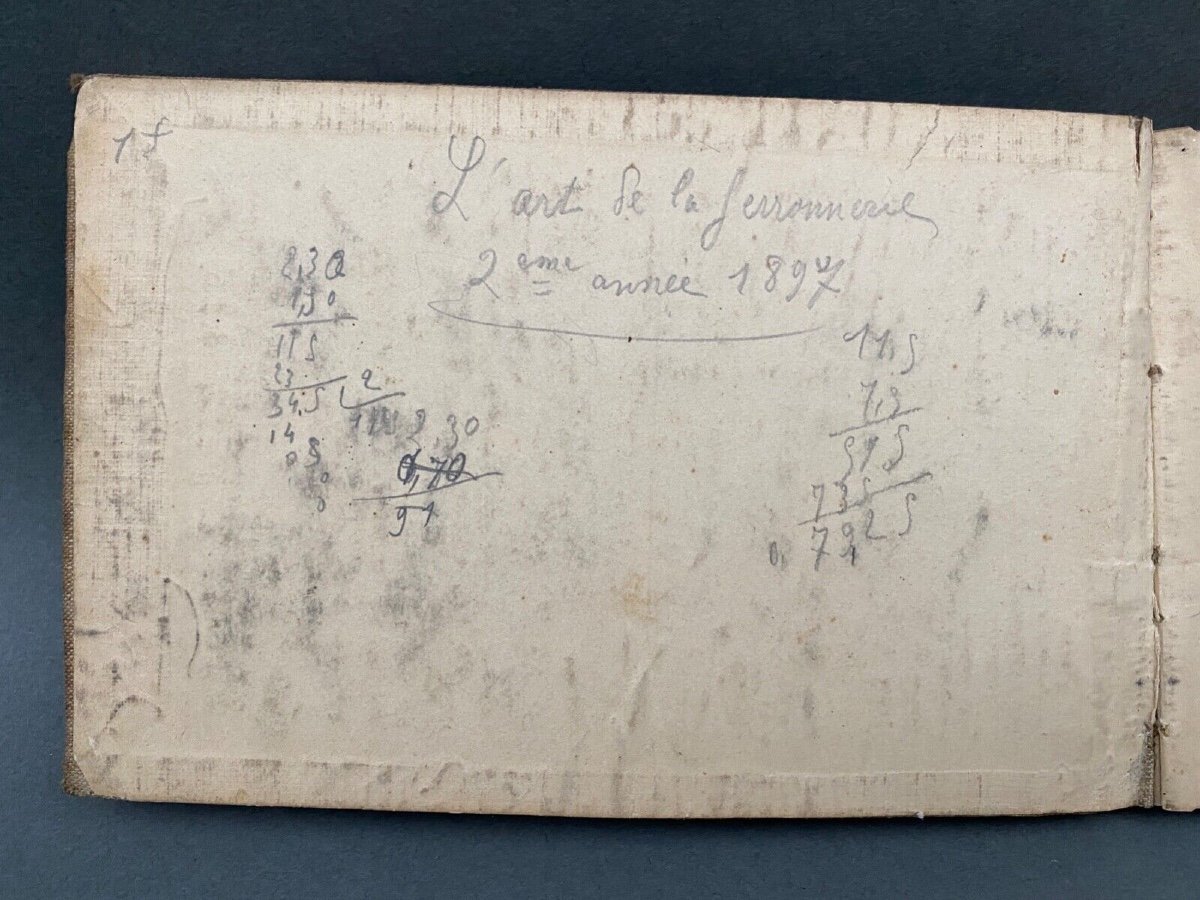 1 f
L'art de la ferronnerie
2 eme année 1897
2,30
1,50
115
23
34,5 2
14
05
0
0
3,30
0,70
91
11,5
7,3
515
735
0,7925